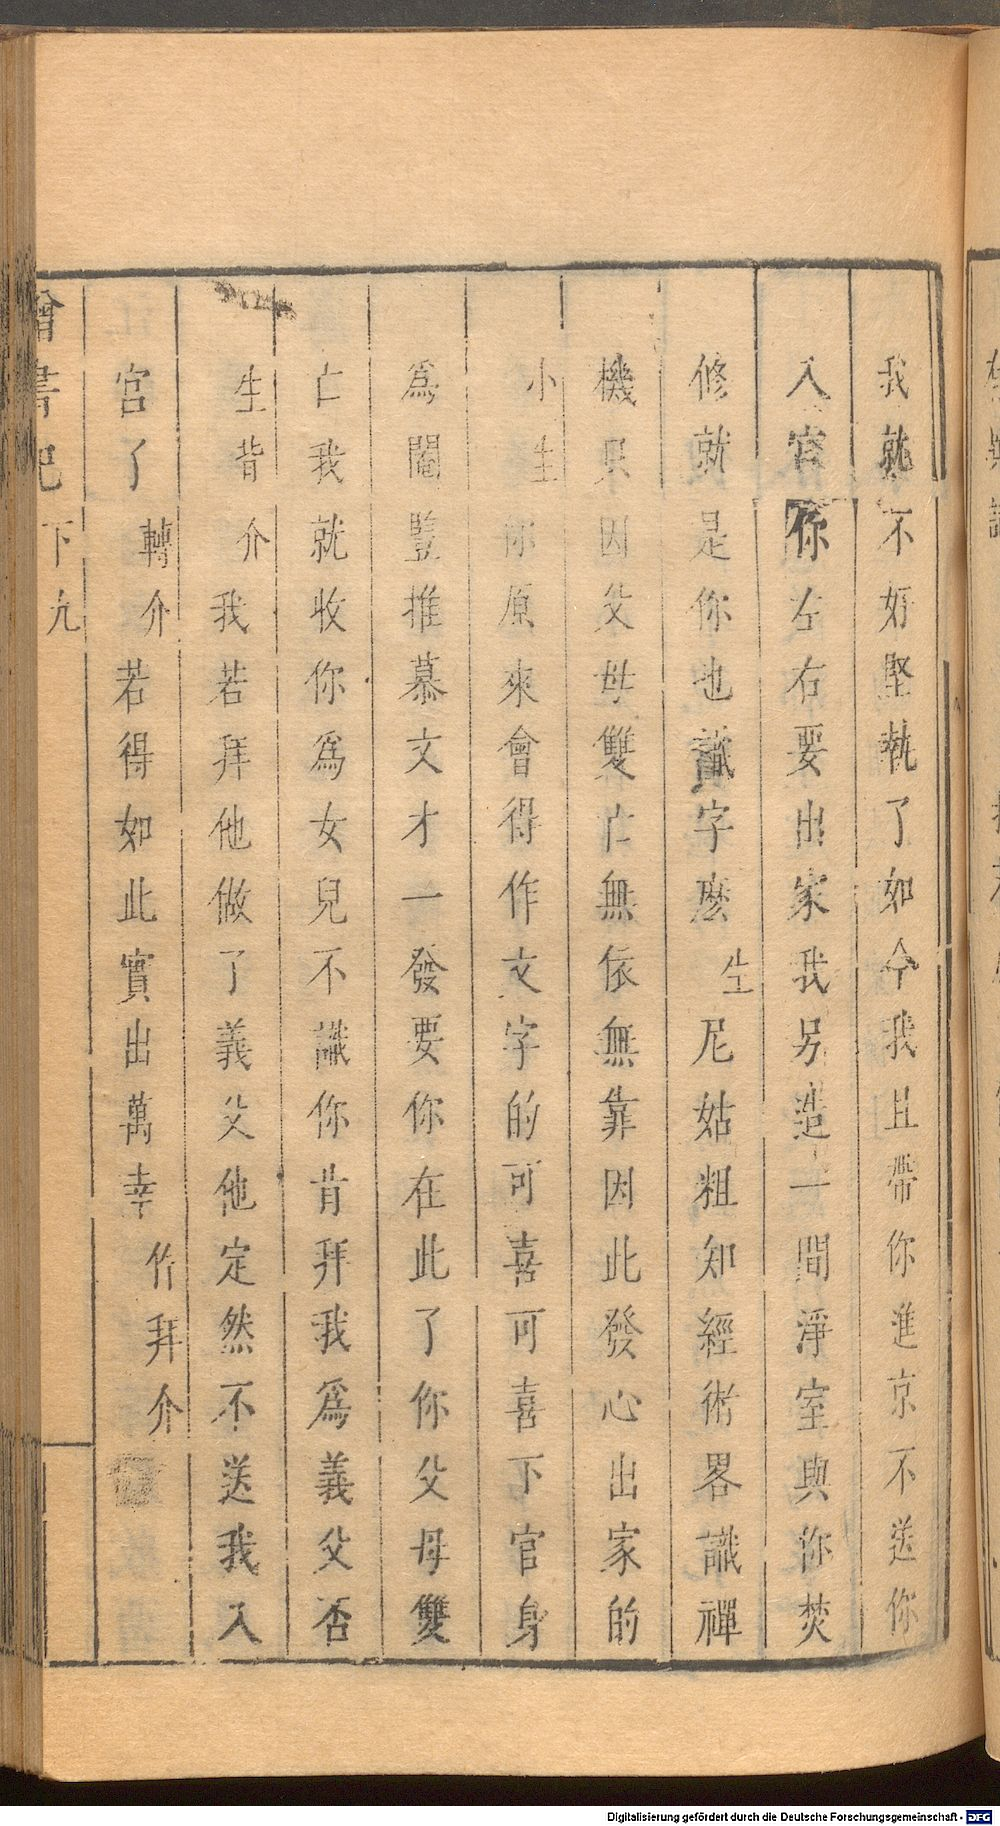 我就不好堅執了如今我且帶你進京不送你
入宮你左右要出家我另造一間淨室與你焚
修就是你也識字麽 生 尼姑粗知經術畧識禪
機只因父母雙亡無依無靠因此發心出家的
小生 你原來會得作文字的可喜可喜下官身
爲閹豎推慕文才一發要你在此了你父母雙
亡我就收你爲女兒不識你肯拜我爲義父否
生背介 我若拜他做了義父他定然不送我入
宮了 轉介 若得如此實出萬幸 竹拜介
書 下 九
Digitalisierung gefördert durch die Deutsche Forschungsgemeinschaft - DFG